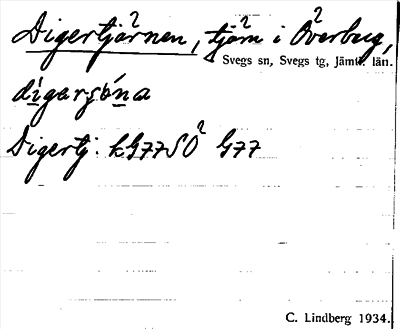 Digertjärnen, tjärn i Överberg,
Svegs sn, Svegs tg, Jämtl. län.
digarṣó̱na
Digertj. kG77SÖ G77
C. Lindberg 1934.